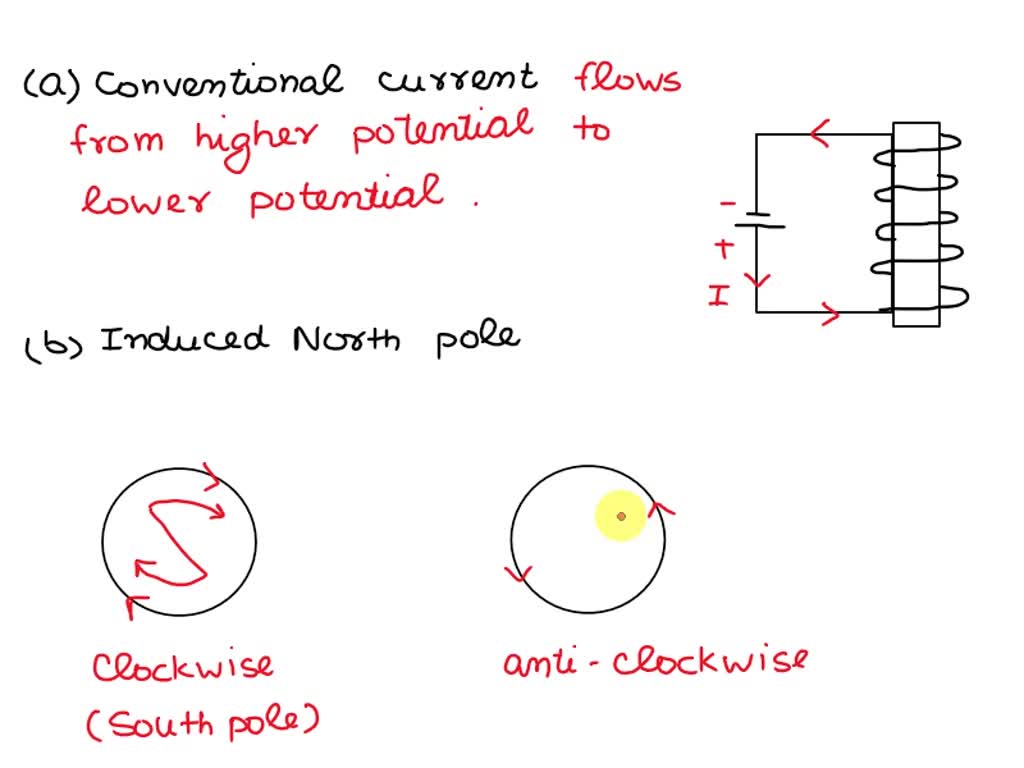 (a) Conventional current flows
from higher potential to
lower potential .
-
+
I
(b) Induced North pole
S
Clockwise
(South pole)
anti - clockwise